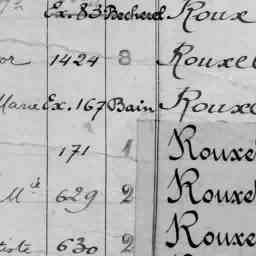 Ex. 83 Becherel Roux
or 1424 8 Rouxel
Marie Ex. 167 Bain Rouxe
171 1 Rouxel
Mie 629 2 Rouxel
tiste 630 2 Rouxel